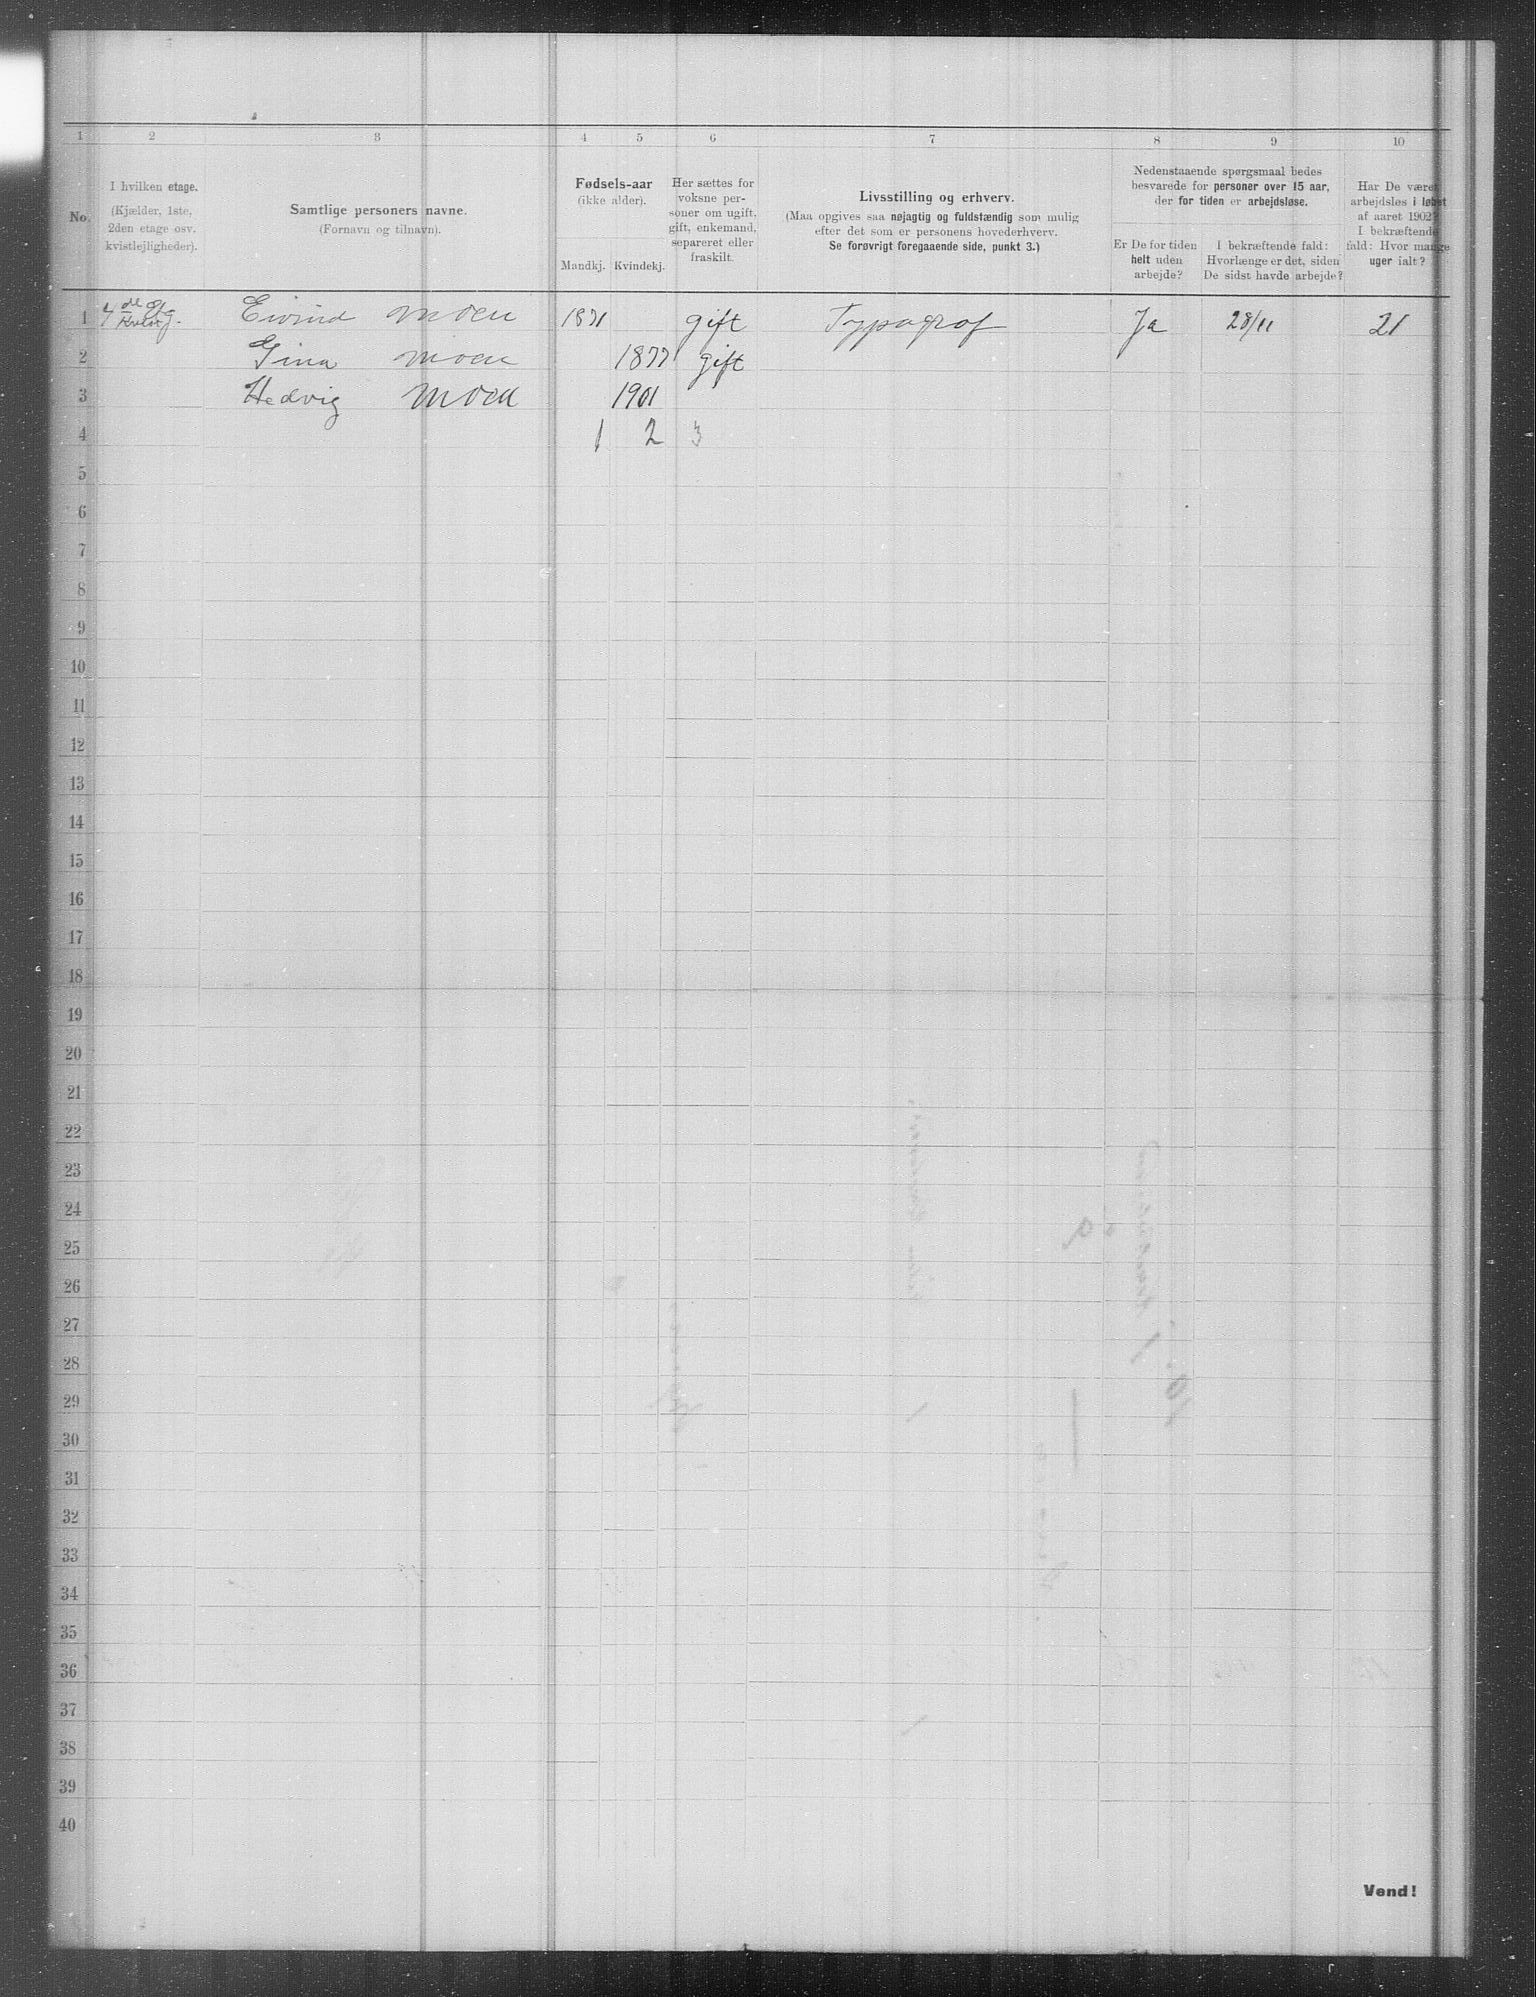 1 2 3 4 5 6 7 8 9 10
No.
I hvilken etage.
(Kjælder, 1ste,
2den etage osv.
kvistlejligheder).
Samtlige personers navne.
(Fornavn og tilnavn).
Fødsels-aar
(ikke alder).
Mandkj. Kvindekj.
Her sættes for
voksne per-
soner om ugift,
gift, enkemand,
separeret eller
fraskilt.
Livsstilling og erhverv.
(Maa opgives saa nøjagtig og fuldstændig som mulig
efter det som er personens hovederhverv.
Se forøvrigt foregaaende side, punkt 3.)
Nedenstaaende spørgsmaal bedes
besvarede for personer over 15 aar,
der for tiden er arbejdsløse.
Er De for tiden
helt uden
arbejde?
I bekræftende fald:
Hvorlænge er det, siden
De sidst havde arbejde?
Har De været
arbejdsløs i løbet
af aaret 1902?
I bekræftende
fald: Hvor mange
uger ialt?
1 4 de Etg. Eivind Moen 1871 gift Typograf Ja 28/11 21
2 Gina Moen 1877 gift
3 Hedvig Moen 1901
4 1 2 3
5
6
7
8
9
10
11
12
13
14
15
16
17
18
19
20
21
22
23
24
25
26
27
28
29
30
31
32
33
34
35
36
37
38
39
40
Vend!